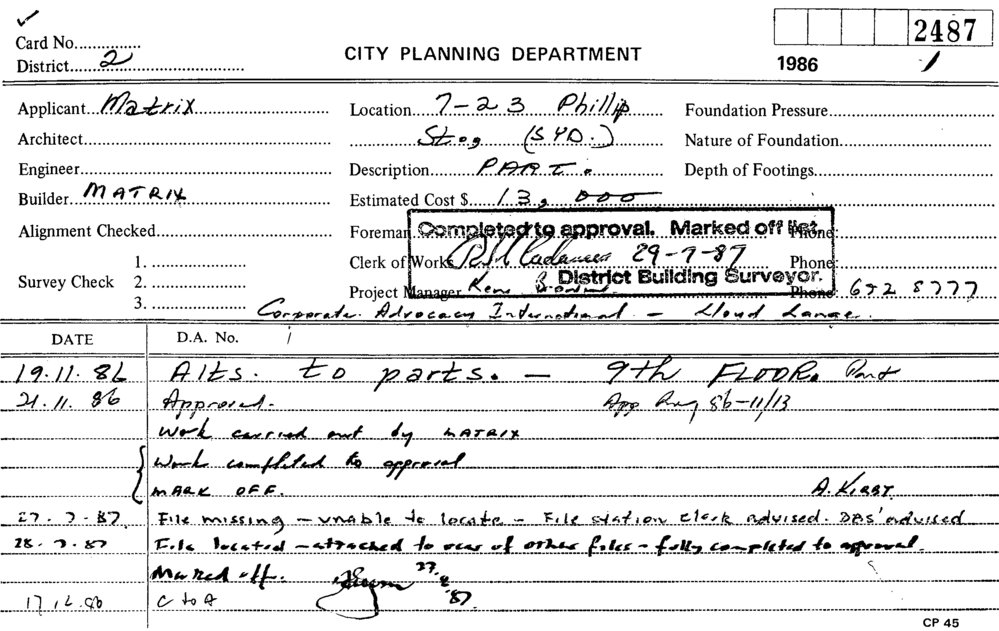 ✓
Card No.
2487
District 2
CITY PLANNING DEPARTMENT
1986 1
Applicant Matrix
Location 7-23 Phillip
Foundation Pressure
Architect
St, (SYD.)
Nature of Foundation
Engineer
Description PART.
Depth of Footings
Builder MATRIX
Estimated Cost $ 13,000
Alignment Checked
Foreman
Completed to approval. Marked off list.
Phone
Clerk of Works
29-7-87
Phone
Survey Check 1.
2.
3.
District Building Surveyor.
Project Manager Kens
Phone 652 8777
Corporate Advocacy International - Lloyd Lange.
DATE
D.A. No.
19.11.86 Alts. to parts. - 9th FLOOR. Part
21.11.86 Approved. App 86-11/13
Work carried out by MATRIX
Work completed to approval
MARK OFF. A. KIRBY
27.7.87 File missing - unable to locate - File station clerk advised. DBS' advised
28.7.87 File located - attached to rear of other files - fully completed to approval.
Marked off.
C to A
CP 45